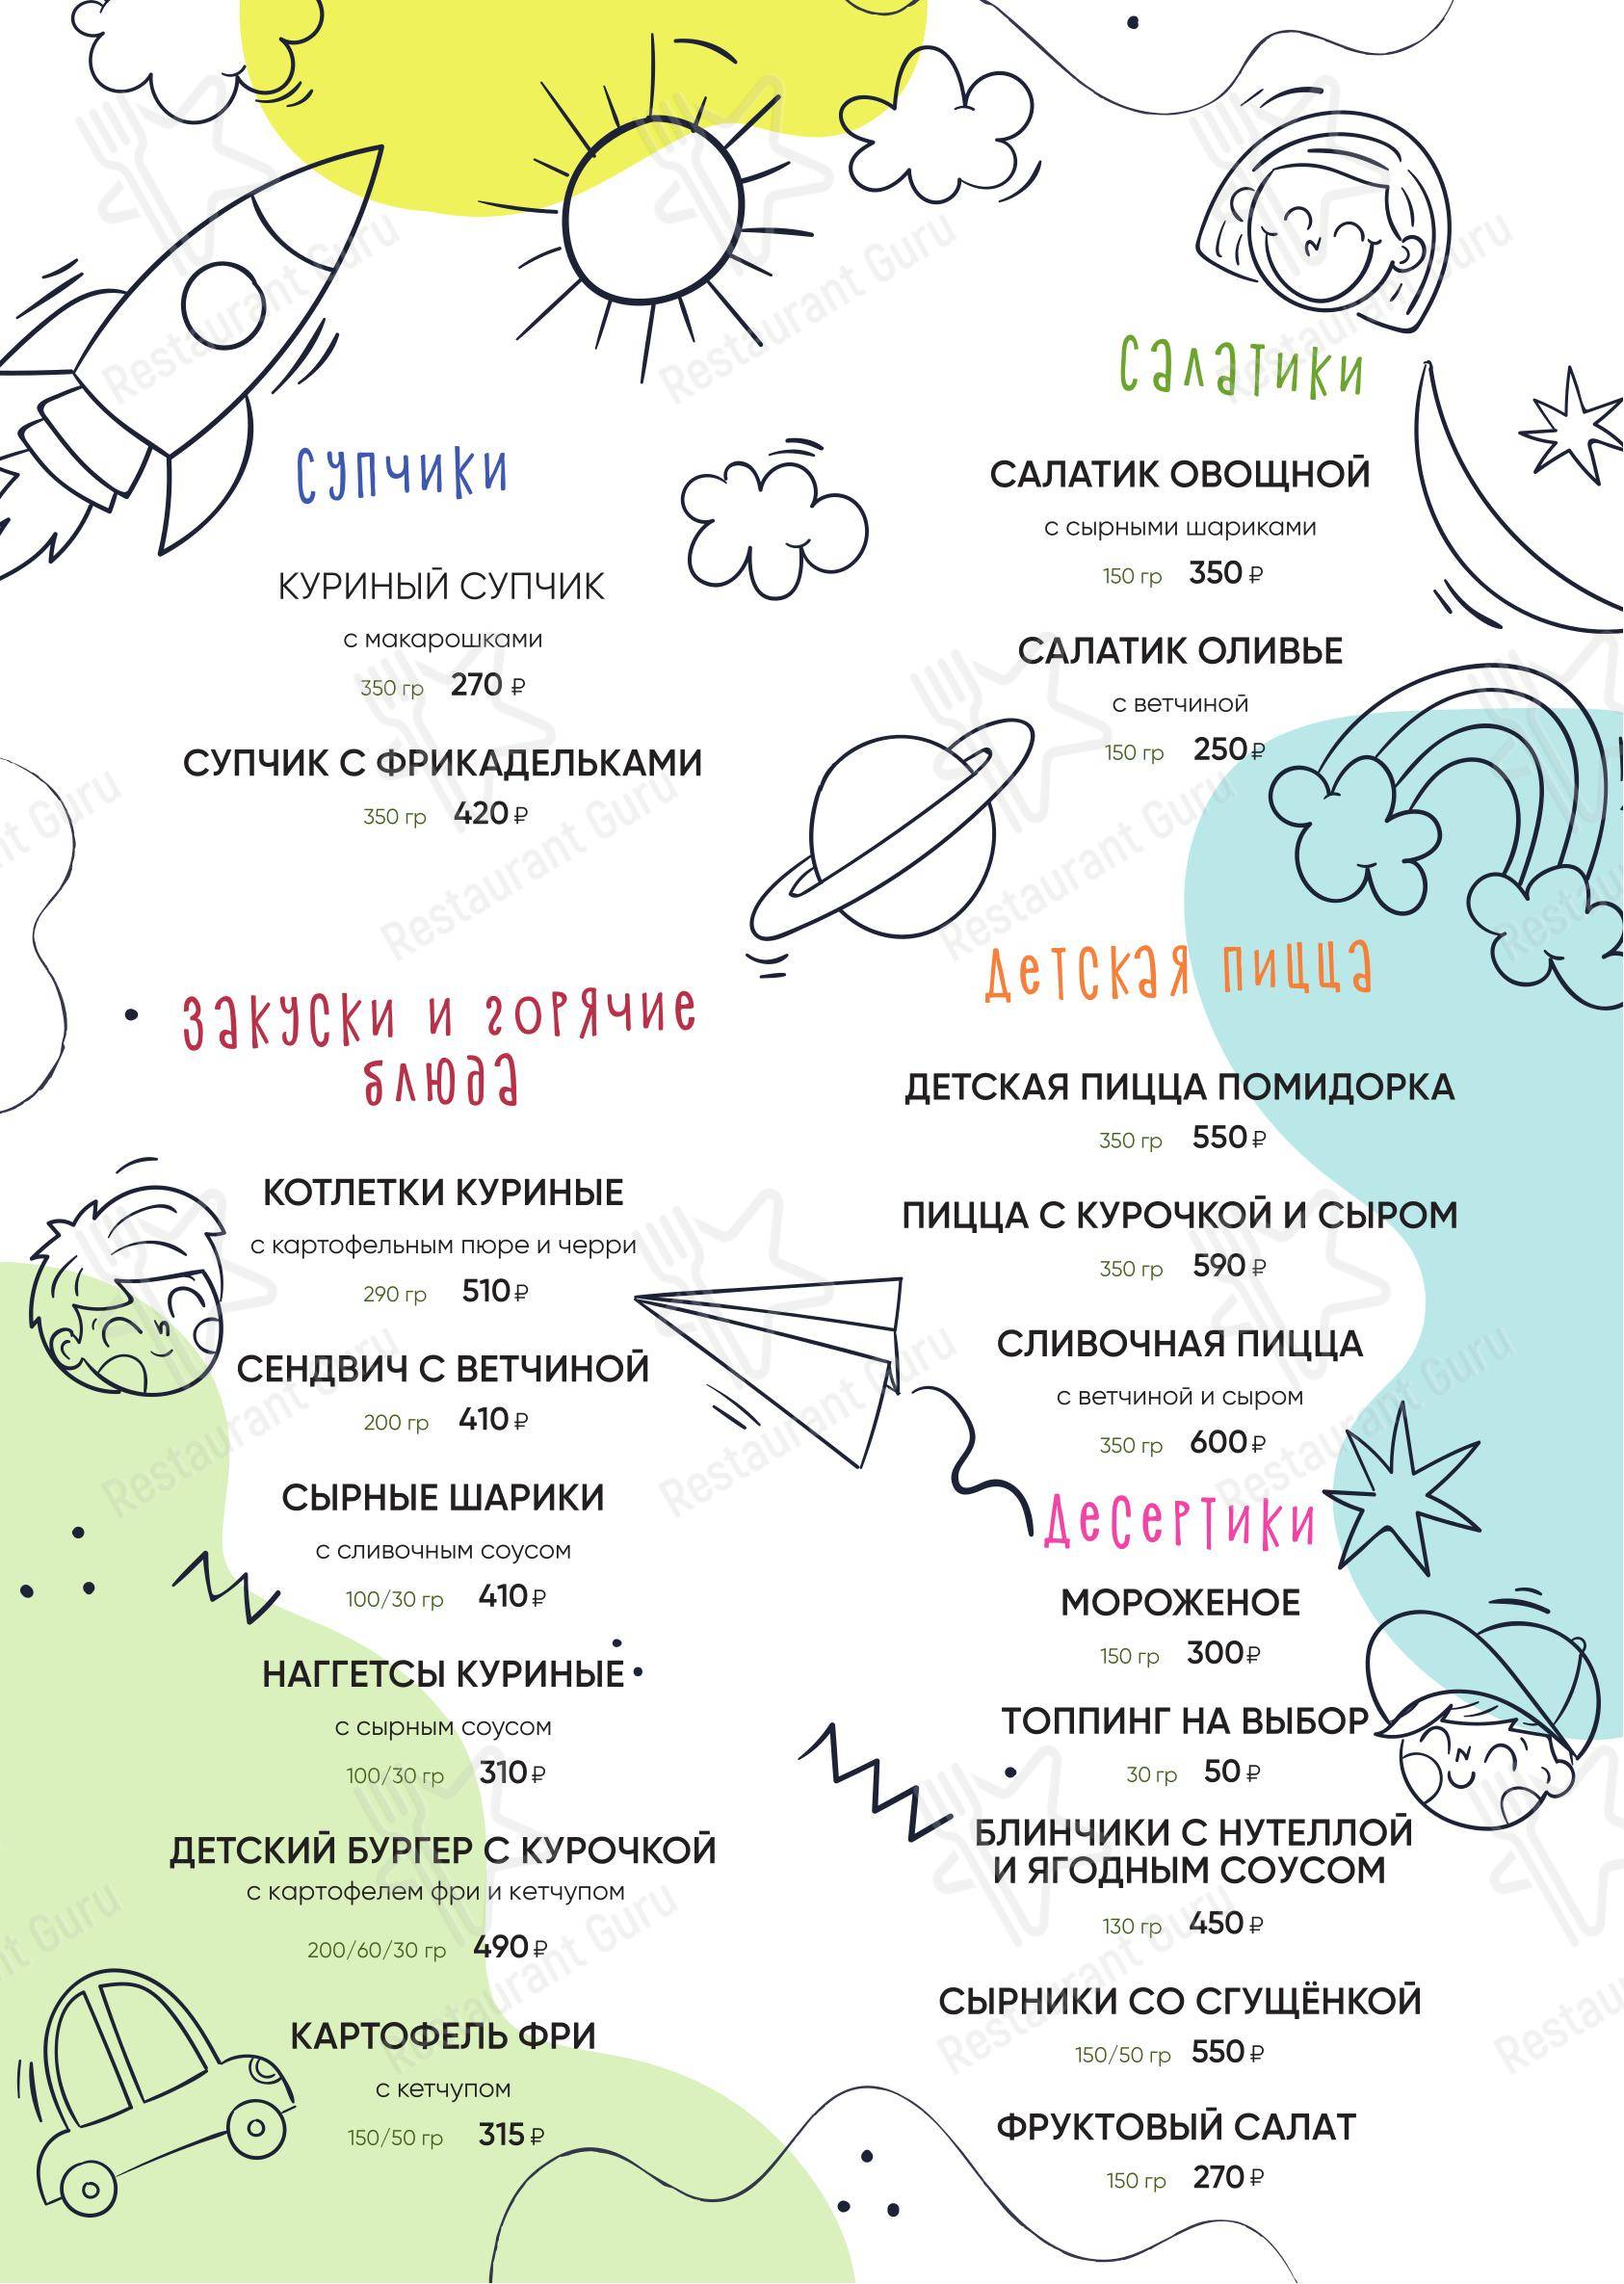 Супчики
КУРИНЫЙ СУПЧИК
с макарошками
350 гр 270 ₽
СУПЧИК С ФРИКАДЕЛЬКАМИ
350 гр 420 ₽
Закуски и горячие
блюда
КОТЛЕТКИ КУРИНЫЕ
с картофельным пюре и черри
290 гр 510 ₽
СЕНДВИЧ С ВЕТЧИНОЙ
200 гр 410 ₽
СЫРНЫЕ ШАРИКИ
с сливочным соусом
100/30 гр 410 ₽
НАГГЕТСЫ КУРИНЫЕ
с сырным соусом
100/30 гр 310 ₽
ДЕТСКИЙ БУРГЕР С КУРОЧКОЙ
с картофелем фри и кетчупом
200/60/30 гр 490 ₽
КАРТОФЕЛЬ ФРИ
с кетчупом
150/50 гр 315 ₽
Салатики
САЛАТИК ОВОЩНОЙ
с сырными шариками
150 гр 350 ₽
САЛАТИК ОЛИВЬЕ
с ветчиной
150 гр 250 ₽
Детская пицца
ДЕТСКАЯ ПИЦЦА ПОМИДОРКА
350 гр 550 ₽
ПИЦЦА С КУРОЧКОЙ И СЫРОМ
350 гр 590 ₽
СЛИВОЧНАЯ ПИЦЦА
с ветчиной и сыром
350 гр 600 ₽
Десертики
МОРОЖЕНОЕ
150 гр 300 ₽
ТОППИНГ НА ВЫБОР
30 гр 50 ₽
БЛИНЧИКИ С НУТЕЛЛОЙ
И ЯГОДНЫМ СОУСОМ
130 гр 450 ₽
СЫРНИКИ СО СГУЩЁНКОЙ
150/50 гр 550 ₽
ФРУКТОВЫЙ САЛАТ
150 гр 270 ₽
Restaurant Guru